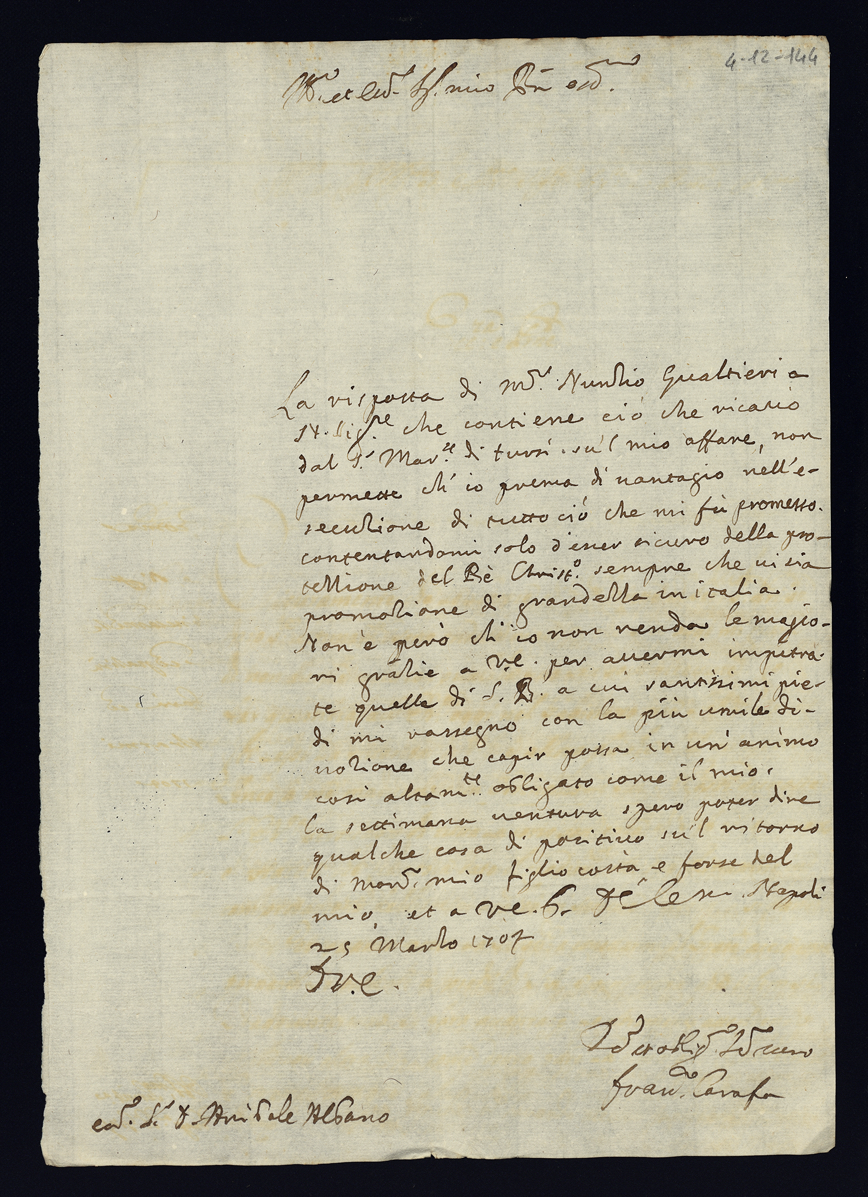 4-12-144
Ill.mo et Ecc.mo Sig. mio P̃rn oss.mo
La risposta di m.r Nuntio Gualtieri a
che contiene ciò che ricavò
dal S.r Mar.se di tursi sù'l mio affare, non
permette ch'io prema di vantagio nell'e-
secutione di tutto ciò che mi fù promesso.
contentandomi solo d'esser sicuro della pro-
tettione del Rè Christ.o sempre che vi sia
promotione di grandezza in italia.
Non è però ch'io non renda le magio-
ri gratie a V.E. per avermi impetra-
te quelle di S. B. a cui santissimi pie-
di mi rassegno con la più umile di-
votione che capir possa in un' animo
così altam.te obligato come il mio.
la settimana ventura spero poter dire
qualche cosa di positivo sù'l ritorno
di mio figlio costà e forse del
mio, et a V.E. b. Napoli
25 Marzo 1707
D V.E.
Fran.co Carafa
S.r D. Anibale Albano